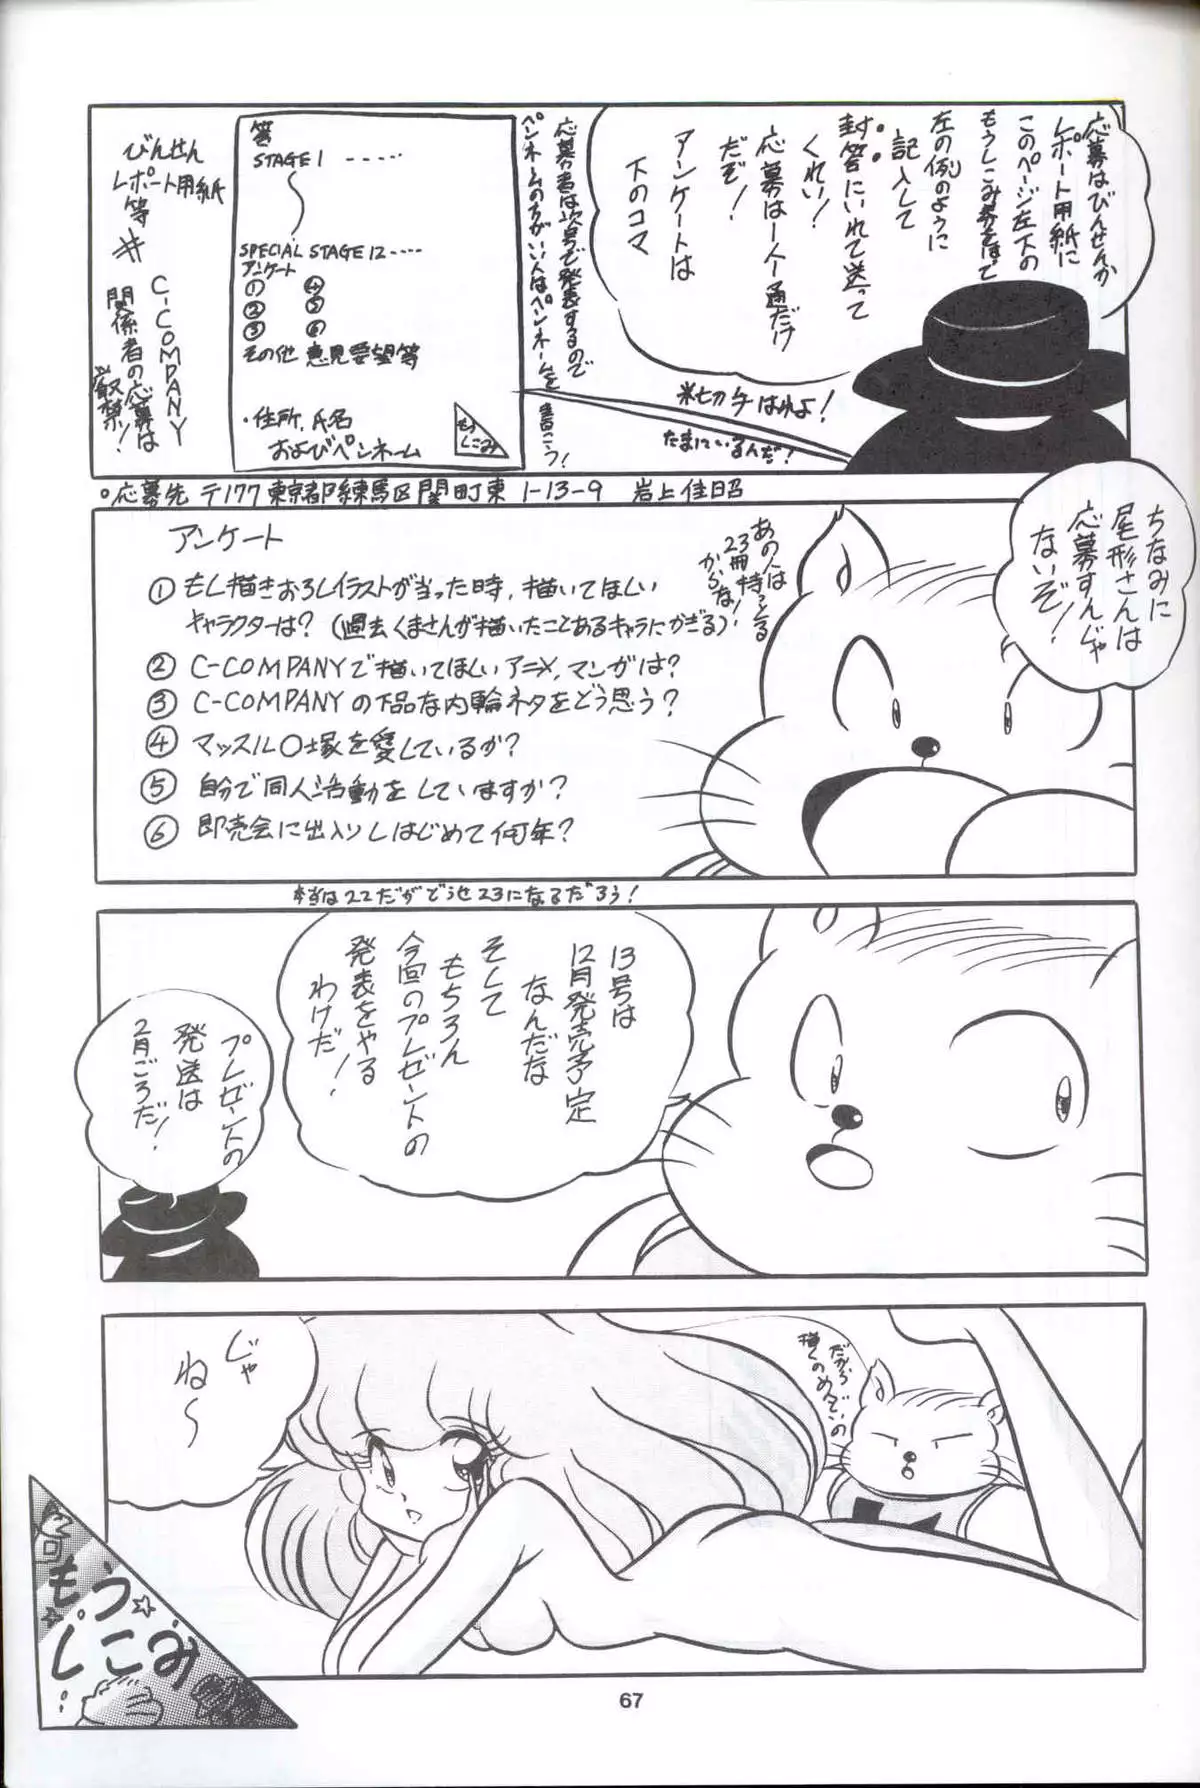 応募はびんせんか
レポート用紙に
このページ左下の
もうしこみ券をはって
左の例のように
記入して
封答にいれて送って
くれい!
応募は一人一通だけ
だぞ!
アンケートは
下のコマ
※切手はれよ!
たまにいるんだ?
応募者は次号で発表するので
ペンネームの方がいい人はペンネームを
書こう!
答
STAGE 1 -----
SPECIAL STAGE 12----
アンケート
① ④
② ⑤
③ ⑥
その他 意見要望等
・住所、氏名
およびペンネーム
もうしこみ
びんせん
レポート用紙
等
C-COMPANY
関係者の応募は
厳禁!
○応募先 〒177 東京都練馬区関町東 1-13-9 岩上佳昭
ちなみに
尾形さんは
応募すんじゃ
ないぞ!
あの人は
23冊持っとる
からな!
アンケート
① もし描きおろしイラストが当った時、描いてほしい
キャラクターは?(過去くまさんが描いたことあるキャラにかぎる)
② C-COMPANYで描いてほしいアニメ、マンガは?
③ C-COMPANYの下品な内輪ネタをどう思う?
④ マッスル○塚を愛しているか?
⑤ 自分で同人活動をしていますか?
⑥ 即売会に出入りしはじめて何年?
本当は22だがどうせ23になるだろう!
13号は
12月発売予定
なんだな
そして
もちろん
今回のプレゼントの
発表をやる
わけだ!
プレゼントの
発送は
2月ごろだ!
だから
描くのめんどいの
じゃ
ね〜
もう
しこみ
67